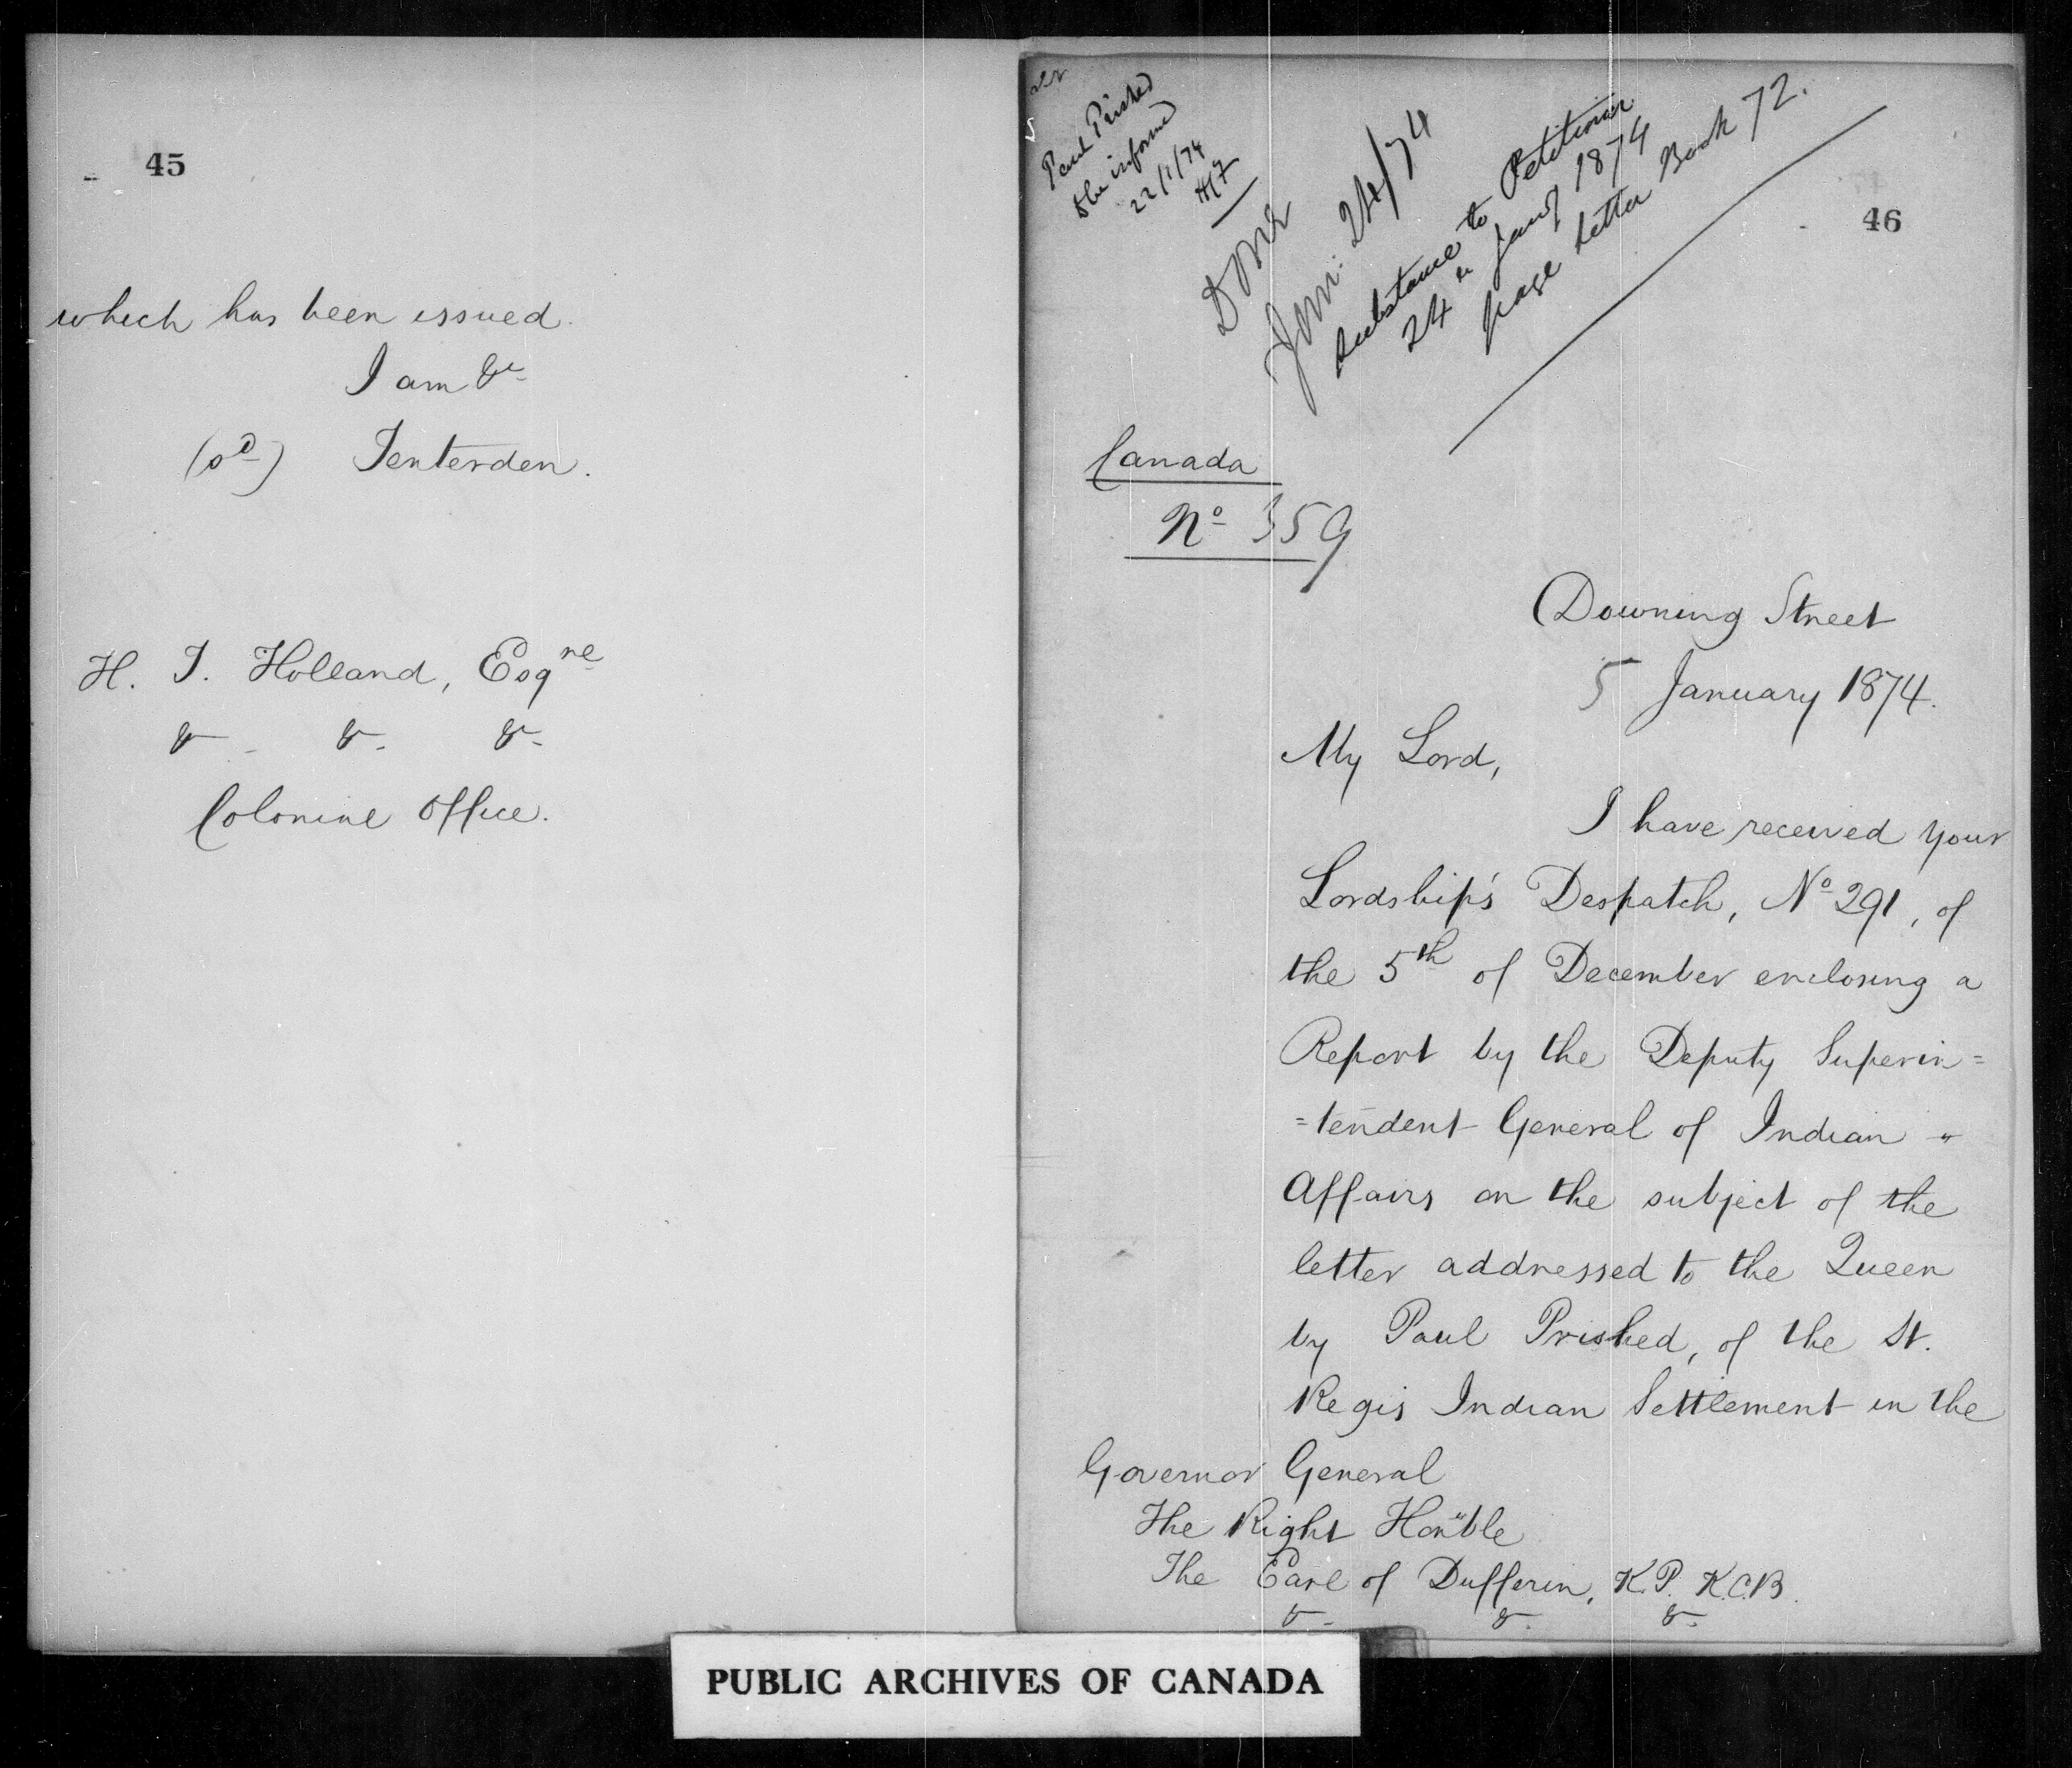 45
which has been issued.
I am &c
(sd) Tenterden.
H. T. Holland, Esqre
& & &
Colonial Office.
46
Paul Prished
to be informed
22/1/74
Done
Jan: 24/74
Substance to Petitioner
24th Jany 1874
page Letter Book 72.
Canada
No 359
Downing Street
5 January 1874.
My Lord,
I have received your
Lordship's Despatch, No 291, of
the 5th of December enclosing a
Report by the Deputy Superin=
=tendent General of Indian
Affairs on the subject of the
letter addressed to the Queen
by Paul Prished, of the St.
Regis Indian Settlement in the
Governor General
The Right Honble
The Earl of Dufferin, K.P. K.C.B.
& & &
PUBLIC ARCHIVES OF CANADA